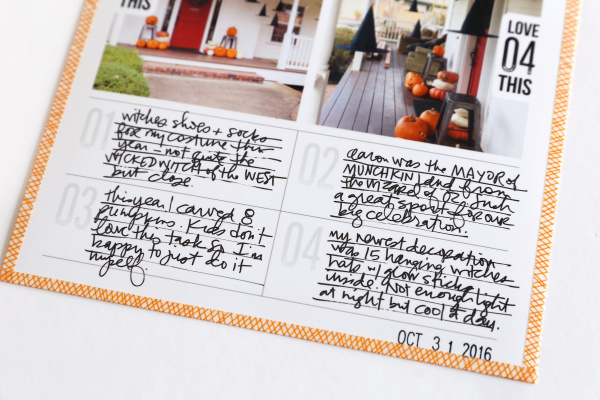 THIS
LOVE
04
THIS
01
witches shoes + socks
for my costume this
year - not quite the
WICKED WITCH of the WEST
but close.
02
aaron was the MAYOR of
MUNCHKIN land from
the wizard of OZ. Such
a great sport for our
big celebration.
03
this year I carved 8
pumpkins. Kids don't
love this task so I'm
happy to just do it
myself.
04
my newest decoration
was 15 hanging witches
hats w/ glow sticks
inside. Not enough light
at night but cool @ day.
OCT 31 2016